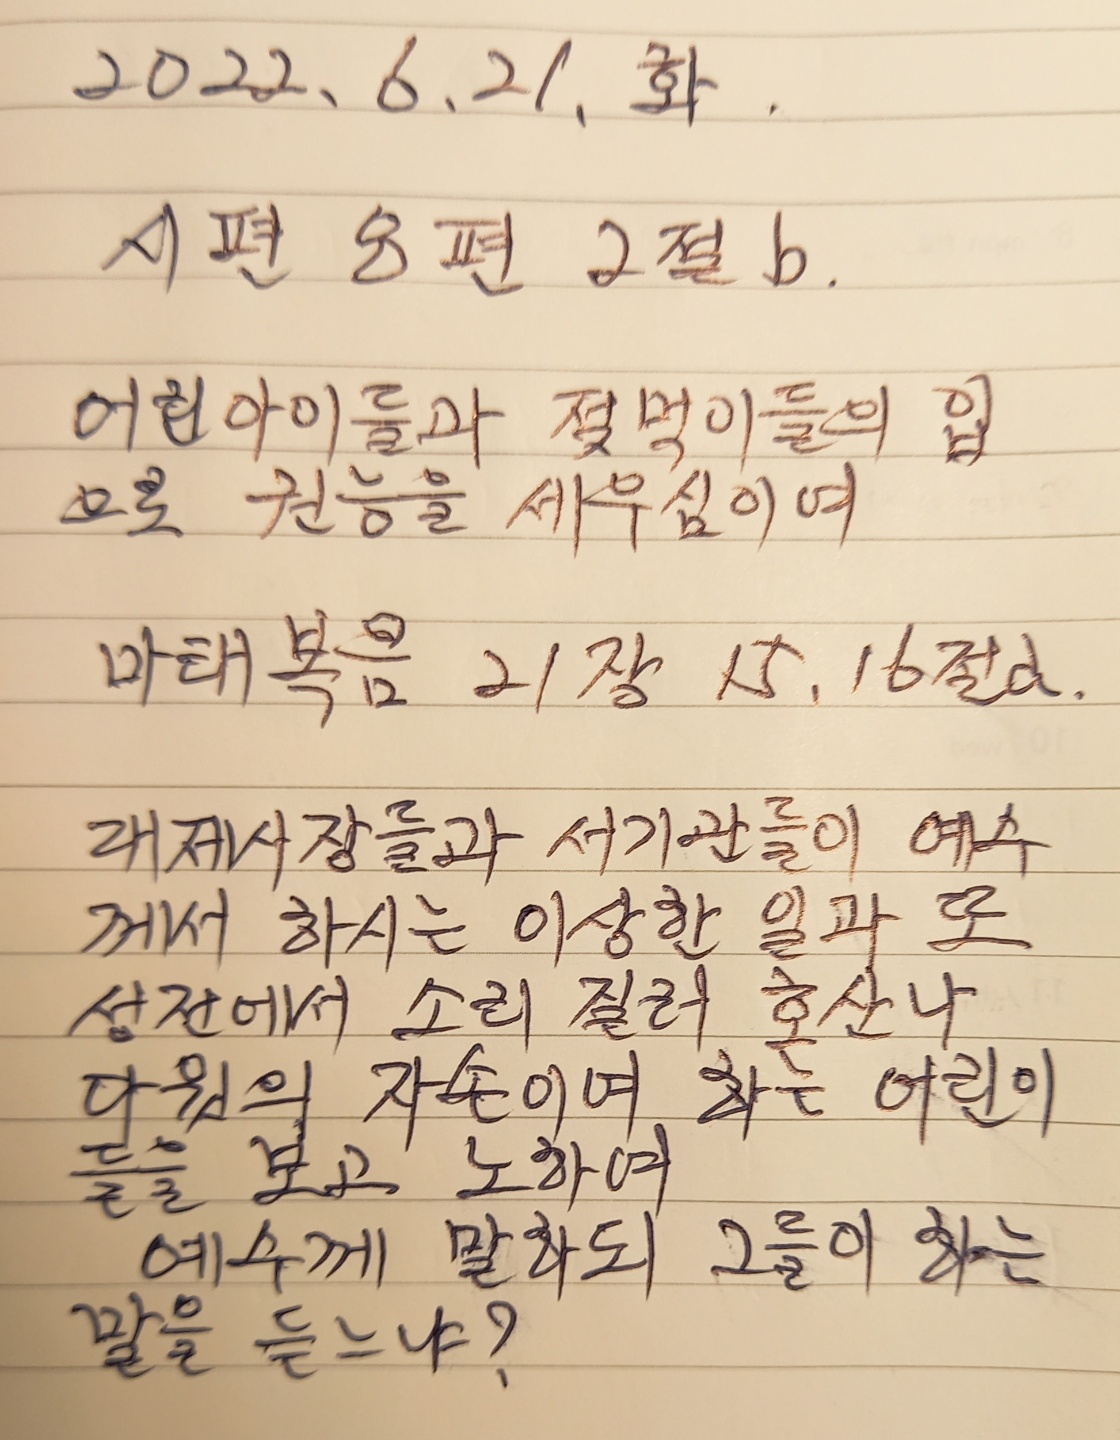 2022. 6. 21. 화.
시편 8편 2절 b.
어린아이들과 젖먹이들의 입
으로 권능을 세우심이여
마태복음 21장 15, 16절a.
대제사장들과 서기관들이 예수
께서 하시는 이상한 일과 또
성전에서 소리 질러 호산나
다윗의 자손이여 하는 어린이
들을 보고 노하여
예수께 말하되 그들이 하는
말을 듣느냐?